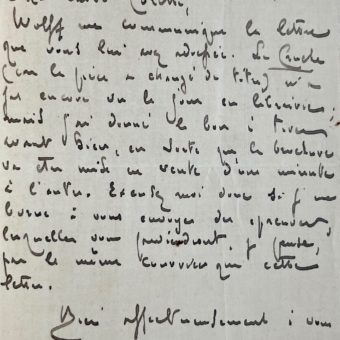 Wolff me communique la lettre
que vous lui avez adressée. La Cruche
(car la pièce a changé de titre) n'a
pas encore vu le jour en librairie;
mais j'ai donné le bon à tirer
avant hier, en sorte que la brochure
va être mise en vente d'une minute
à l'autre. Excusez moi donc si j'me
borne à vous envoyer des épreuves,
lesquelles vous parviendront, je pense,
par le même courrier que cette
lettre.
Bien affectueusement à vous